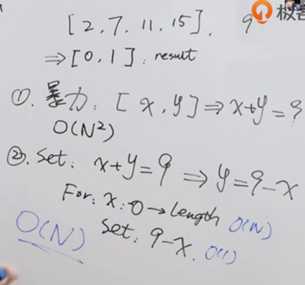 [2,7,11,15]. 9
⇒[0,1]. result
①. 暴力. [x,y]⇒x+y=9
O(N²)
②. Set: x+y=9 ⇒ y=9-x
For: x: 0→length O(N)
Set: 9-x. O(1)
O(N)
极客